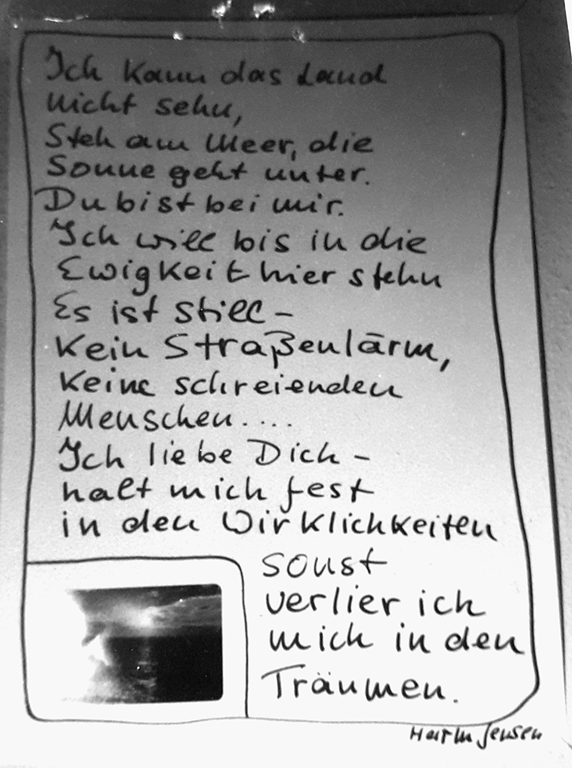 Ich kann das Land
nicht sehn,
Steh am Meer, die
Sonne geht unter.
Du bist bei mir.
Ich will bis in die
Ewigkeit hier stehn
Es ist still –
Kein Straßenlärm,
keine schreienden
Menschen....
Ich liebe Dich –
halt mich fest
in den Wirklichkeiten
sonst
verlier ich
mich in den
Träumen.
Jensen